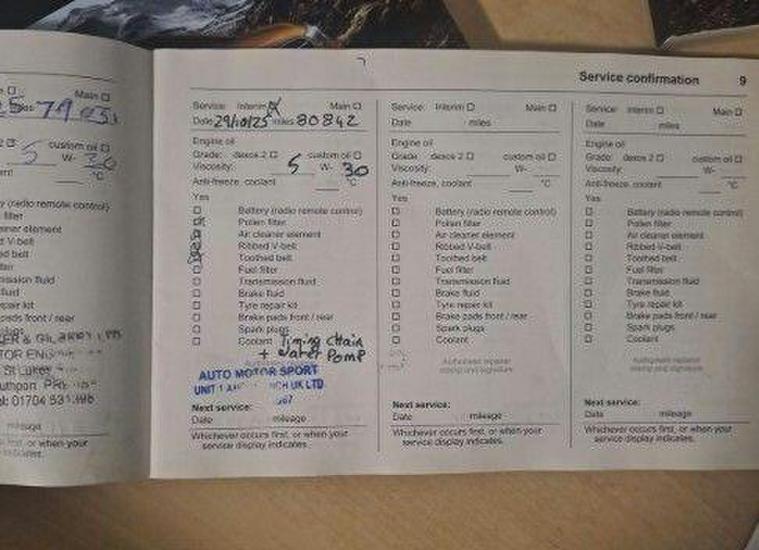 Service confirmation 9
Main ☐
79051
custom oil ☐
5 W- 30
°C
(radio remote control)
filter
V-belt
belt
filter
fluid
fluid
repair kit
pads front / rear
plugs
St Lukes
01704 531
mileage
first, or when your
indicates.
Service: Interim ☐ Main ☐
Date 29/10/25 miles 80842
Engine oil
Grade: dexos 2 ☐ custom oil ☐
Viscosity: 5 W- 30
Anti-freeze, coolant °C
Yes
☐ Battery (radio remote control)
☐ Pollen filter
☐ Air cleaner element
☐ Ribbed V-belt
☐ Toothed belt
☐ Fuel filter
☐ Transmission fluid
☐ Brake fluid
☐ Tyre repair kit
☐ Brake pads front / rear
☐ Spark plugs
☐ Coolant Timing chain
+ water Pomp
AUTO MOTOR SPORT
UNIT 1 UK LTD
Next service:
Date mileage
Whichever occurs first, or when your
service display indicates.
Service: Interim ☐ Main ☐
Date miles
Engine oil
Grade: dexos 2 ☐ custom oil ☐
Viscosity: W-
Anti-freeze, coolant °C
Yes
☐ Battery (radio remote control)
☐ Pollen filter
☐ Air cleaner element
☐ Ribbed V-belt
☐ Toothed belt
☐ Fuel filter
☐ Transmission fluid
☐ Brake fluid
☐ Tyre repair kit
☐ Brake pads front / rear
☐ Spark plugs
☐ Coolant
Authorised repairer
stamp and signature
Next service:
Date mileage
Whichever occurs first, or when your
service display indicates.
Service: Interim ☐ Main ☐
Date miles
Engine oil
Grade: dexos 2 ☐ custom oil ☐
Viscosity: W-
Anti-freeze, coolant °C
Yes
☐ Battery (radio remote control)
☐ Pollen filter
☐ Air cleaner element
☐ Ribbed V-belt
☐ Toothed belt
☐ Fuel filter
☐ Transmission fluid
☐ Brake fluid
☐ Tyre repair kit
☐ Brake pads front / rear
☐ Spark plugs
☐ Coolant
Authorised repairer
stamp and signature
Next service:
Date mileage
Whichever occurs first, or when your
service display indicates.